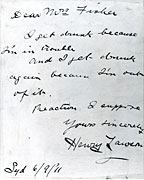 Dear Mrs Fisher
I get drunk because
I'm in trouble
And I get drunk
again because I'm out
of it.
Reaction I suppose
Yours sincerely
Henry Lawson
Syd 6/9/11